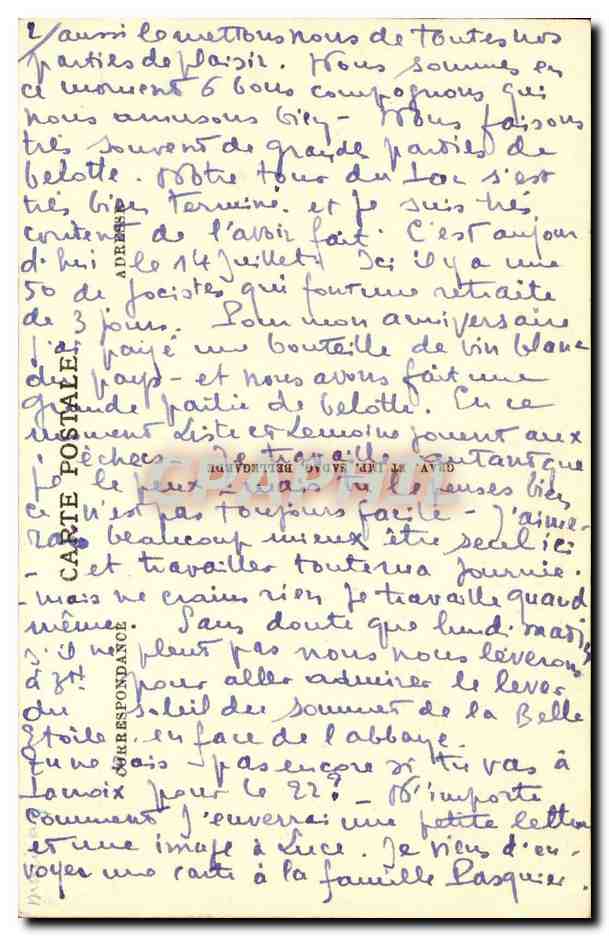 2/ aussi le mettons nous de toutes nos
parties de plaisir. Nous sommes en
ce moment 6 bons compagnons qui
nous amusons bien - Nous faisons
très souvent de grandes parties de
belotte. Notre tour du Lac s'est
très bien terminé. et je suis très
content de l'avoir fait. C'est aujour
d'hui le 14 Juillet. Ici il y a une
50 de Jocistes qui font une retraite
de 3 jours. Pour mon anniversaire
j'ai payé une bouteille de vin blanc
du pays - et nous avons fait une
grande partie de belotte. En ce
moment Liste et Lemoine jouent aux
échecs. Je travaille autant que
je le peux - mais tu le penses bien
ce n'est pas toujours facile - J'aime-
rais beaucoup mieux être seul ici
- et travailler toute ma journée.
- mais ne crains rien je travaille quand
même. Sans doute que lundi
s'il ne pleut pas nous nous lèverons
à 3h pour aller admirer le lever
du soleil du sommet de la Belle
Etoile. en face de l'abbaye.
Tu ne sais pas encore si tu vas à
Lamoix pour le 22? - N'importe
comment j'enverrai une petite lettre
et une image à Luce. Je viens d'en-
voyer une carte à la famille Pasquier.
CARTE POSTALE
ADRESSE
CORRESPONDANCE
GRAV. ET IMP. SADAG, BELLEGARDE